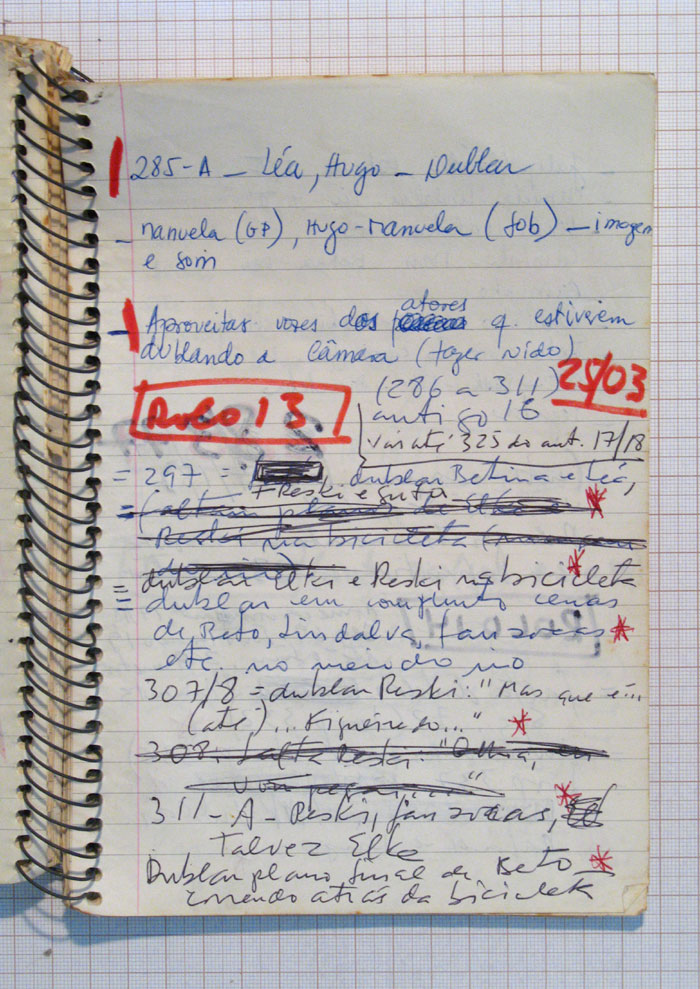 285-A – Léa, Hugo – Dublar
– Manuela (GP), Hugo-Manuela (Sob) – imagem
e som
– Aproveitar vozes dos atores q. estiverem
dublando a câmara (fazer ruído)
(286 a 311) 25/03
ROLO 13 antigo 16
vai até 325 do ant. 17/18
= 297 = dublar Betina e Léa,
+ Reski e Guta
(faltam planos de Elke e
Reski na bicicleta
dublar Elke e Reski na bicicleta
= dublar em conjunto cenas
de Beto, Lindalva, fanzocas
etc. no meio do rio
307/8 = dublar Reski: "Mas que é...
(até)... Figueiredo..."
308: falta Reski: "Olha, eu
vou pegar....."
311-A – Reski, fanzocas,
Talvez Elke
Dublar plano final de Beto
correndo atrás da biciclet